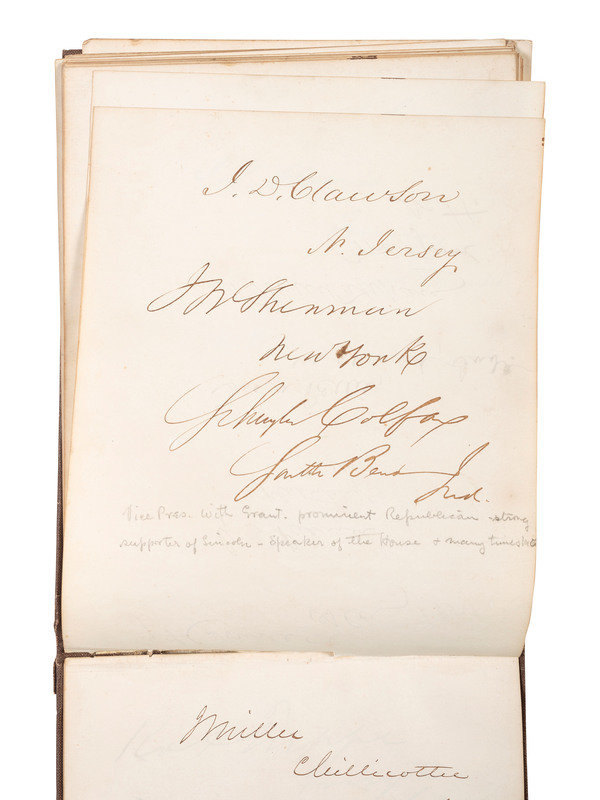 I. D. Clawson
N. Jersey
J W Sherman
New York
Schuyler Colfax
South Bend Ind.
Vice Pres. With Grant. prominent Republican - strong
supporter of Lincoln - Speaker of the House & many times
Miller
Chillicothe